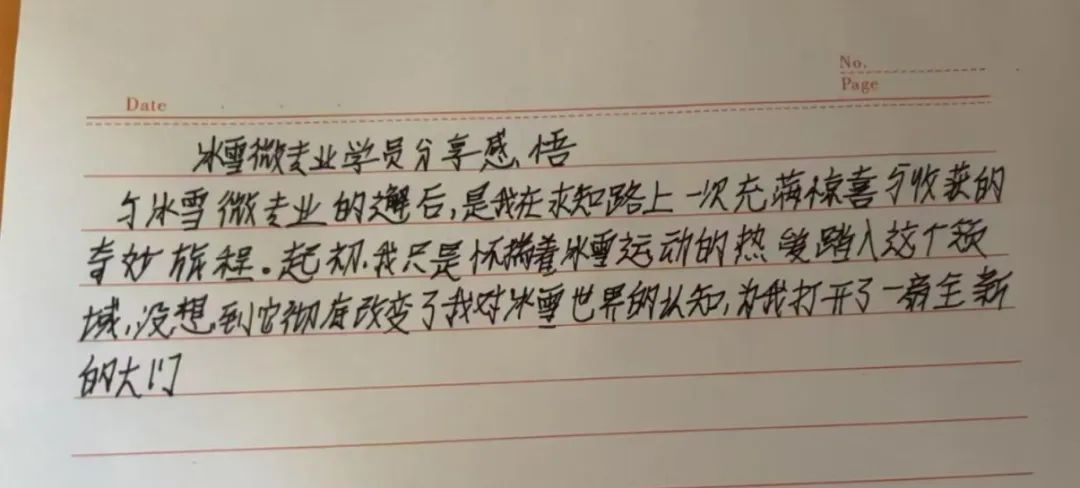 No.
Page
Date
冰雪微专业学员分享感悟
与冰雪微专业的邂后,是我在求知路上一次充满惊喜与收获的
奇妙旅程。起初,我只是怀揣着冰雪运动的热爱踏入这个领
域,没想到它彻底改变了我对冰雪世界的认知,为我打开了一扇全新
的大门